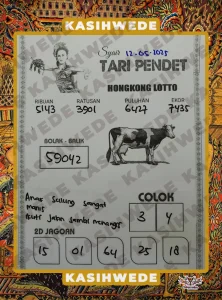 KASIHWEDE
Syair 12-05-2025
TARI PENDET
HONGKONG LOTTO
RIBUAN RATUSAN PULUHAN EKOR
5143 3901 6427 7435
BOLAK - BALIK
59042
Anak Sulung sangat
manis
Ikuti jalan sambil menangis
COLOK
3 4
2D JAGOAN
15 01 64 25 18
KASIHWEDE